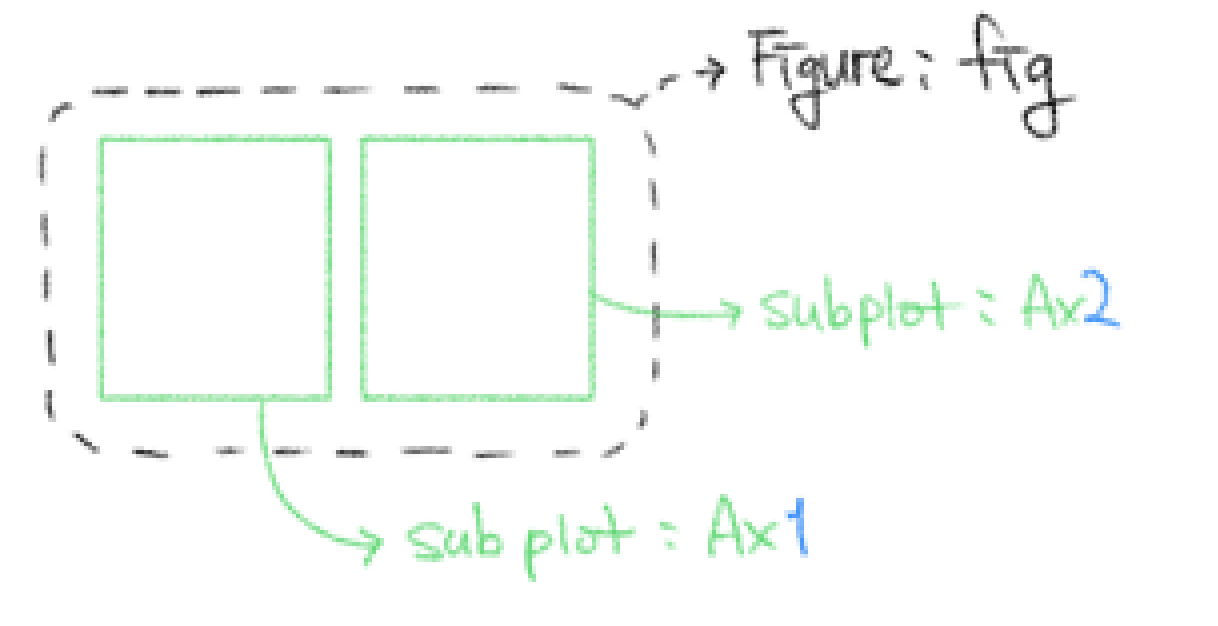 Figure: fig
subplot: Ax2
sub plot: Ax1